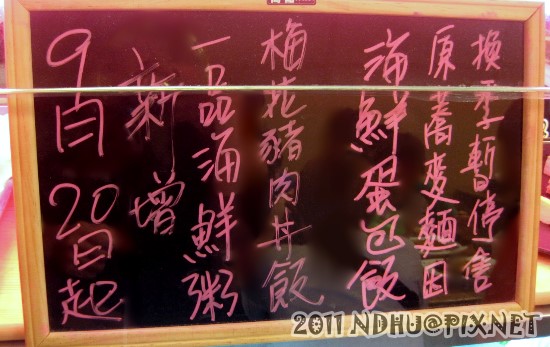 9月20日起
新增
一品海鮮粥
梅花豬肉丼飯
海鮮蛋包飯
原蕎麥麵因
換季暫停售
2011 NDHU@PIX.NET